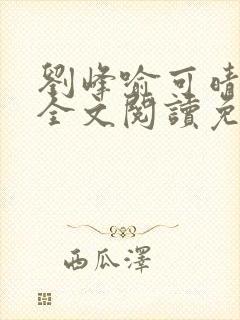 劉峰喻可晴
全文閱讀免
西瓜澤